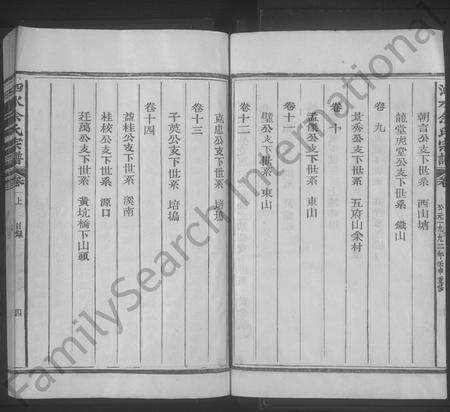 朝言公支下世系 西山塘
卷九
龍堂虎堂公支下世系 鐵山
景秀公支下世系 五府山余村
卷十
孟儀公支下世系 東山
卷十一
璧公支下世系 東山
卷十二
克忠公支下世系 培塢
卷十三
子英公支下世系 培塢
卷十四
益桂公支下世系 溪南
桂枝公支下世系 源口
廷萬公支下世系 黃坑橋下山頭
泗水余氏宗譜
卷上
目録
四
FamilySearch International